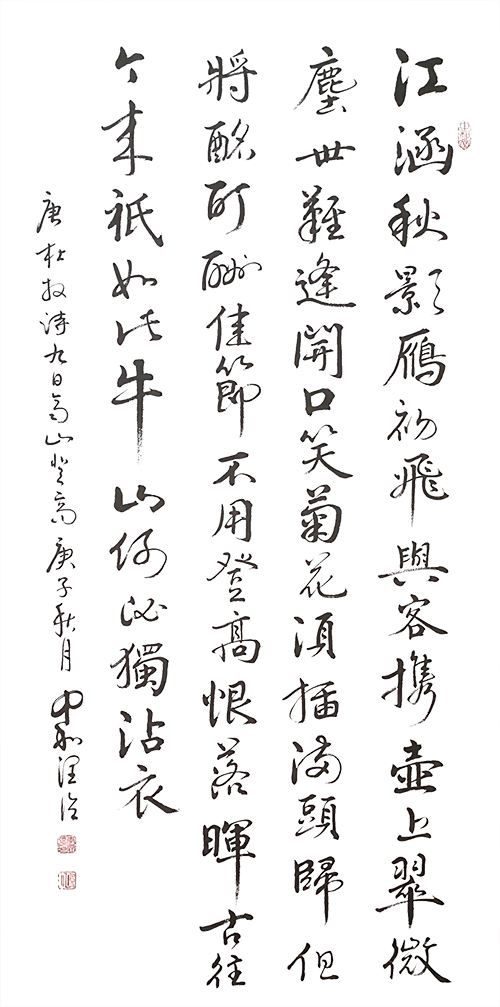 江涵秋影鴈初飛與客携壺上翠微
塵世難逢開口笑菊花須插滿頭歸但
將酩酊酬佳節不用登高恨落暉古往
今來祇如此牛山何必獨沾衣
唐杜牧詩九日齊山登高庚子秋月